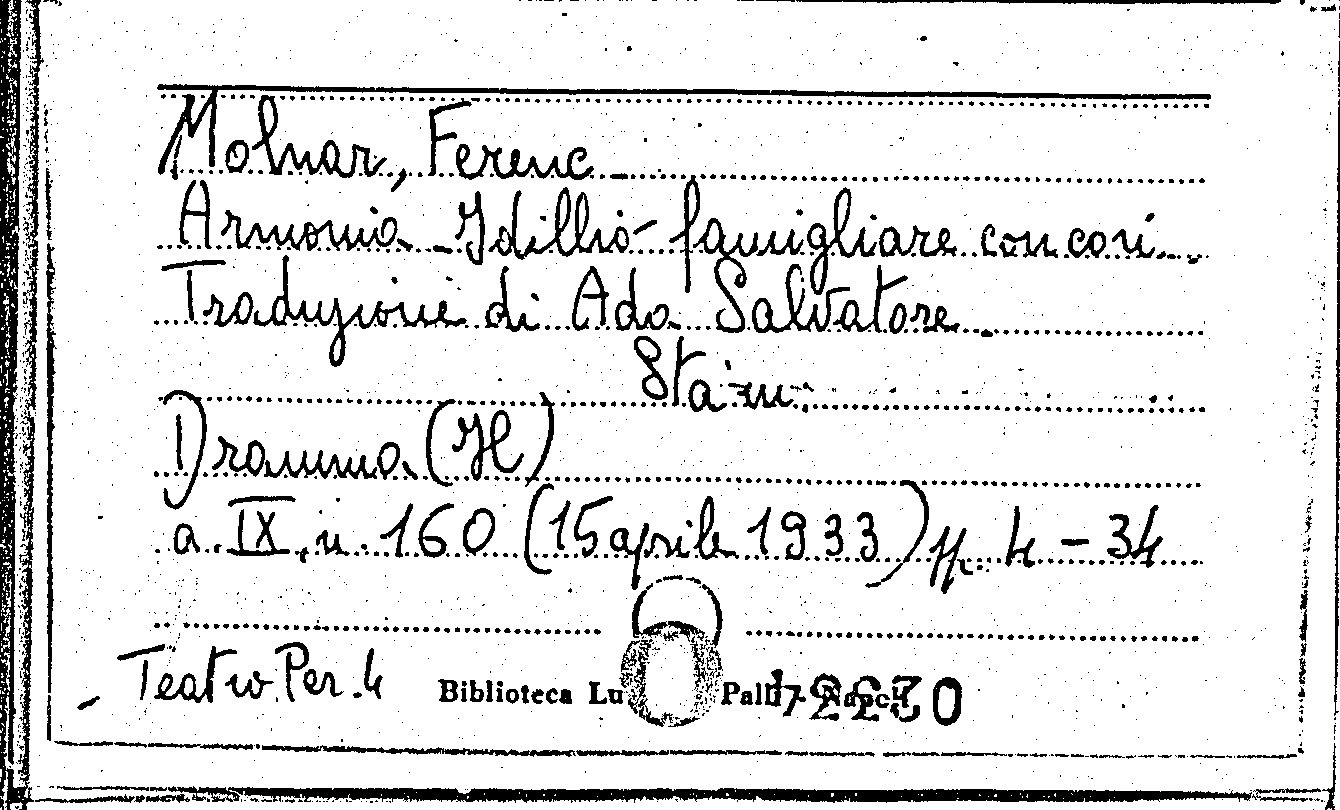 Molnar, Ferenc
Armonia - Idillio famigliare con cori.
Traduzione di Ada Salvatore.
Stam.
Dramma (Il)
a. IX, n. 160 (15 aprile 1933) pp. 4 - 34
Teatro Per. 4
Biblioteca Lu Palli - Napoli